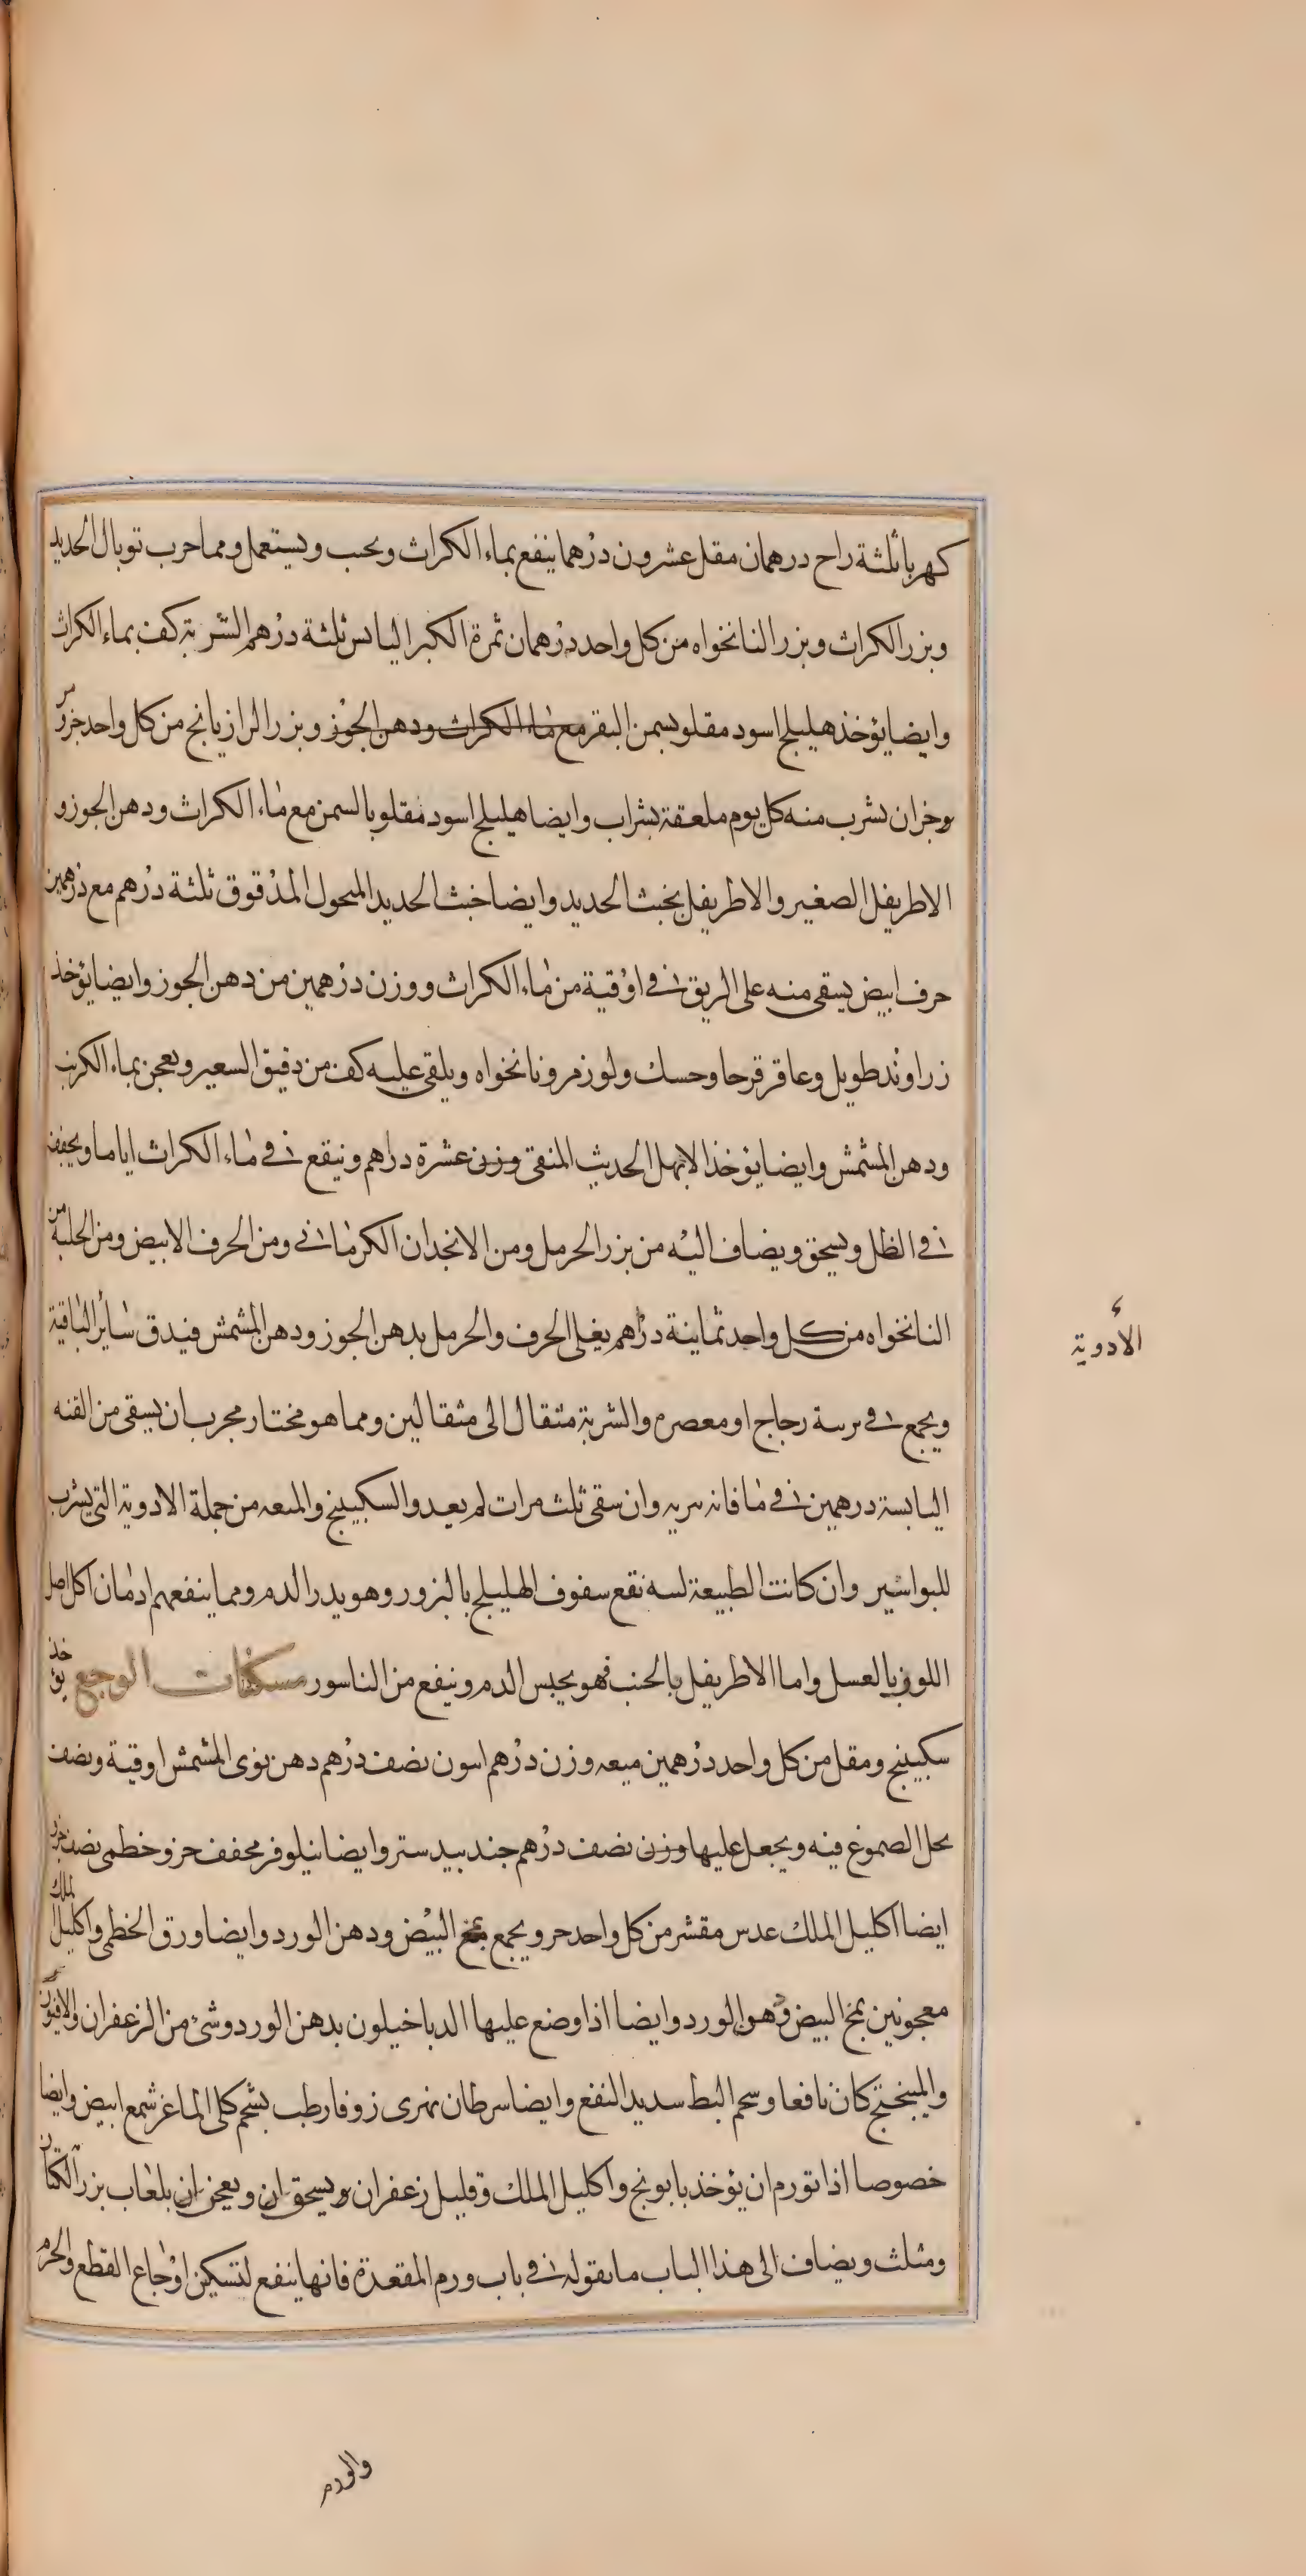 كهربا ثلثة زاج درهمان مقل عشرون درهما ينقع بماء الكراث ويحبب ويستعمل ومما جرب توبال الحديد
وبزر الكراث وبزر النانخواه من كل واحد درهمان ثمرة الكبر اليابس ثلثة درهم الشربة كف بماء الكراث
وايضا يؤخذ هليلج اسود مقلو بسمن البقر مع ماء الكراث ودهن الجوز وبزر الرازيانج من كل واحد جزؤ
يشرب منه كل يوم ملعقة بشراب وايضا هليلج اسود مقلو بالسمن مع ماء الكراث ودهن الجوز و
الاطريفل الصغير والاطريفل بخبث الحديد وايضا خبث الحديد المنحول المدقوق ثلثة درهم مع درهمين
حرف ابيض يسقى منه على الريق في اوقية من ماء الكراث ووزن درهمين من دهن الجوز وايضا يؤخذ
زراوند طويل وعاقرقرحا وحسك ولوز مر ونانخواه ويلقى عليه كف من دقيق الشعير ويعجن بماء الكرنب
ودهن المشمش وايضا يؤخذ الابهل الحديث المنقى وزن عشرة دراهم وينقع في ماء الكراث اياما ويجفف
في الظل ويسحق ويضاف اليه من بزر الحرمل ومن الانجدان الكرماني ومن الحرف الابيض ومن الحلبة من
النانخواه من كل واحد ثمانية دراهم يغلى الحرف والحرمل بدهن الجوز ودهن المشمش فيدق سائر الباقية
الأدوية
ويجمع في برنية زجاج او معصرم والشربة مثقال الى مثقالين ومما هو مختار مجرب ان يسقى من القنه
اليابسة درهمين في ما فانه يبريه وان سقى ثلث مرات لم يعد والسكبينج والميعه من جملة الادوية التي يشرب
للبواسير وان كانت الطبيعة لينه نفع سفوف الهليلج بالبزور وهو يدر الدم ومما ينفعهم ادمان اكل اصل
اللوف بالعسل واما الاطريفل بالخبث فهو يحبس الدم وينفع من الناسور مسكنات الوجع يؤخذ
سكبينج ومقل من كل واحد درهمين ميعه وزن درهم افيون نصف درهم دهن نوى المشمش اوقية ونصف
يحل الصموغ فيه ويجعل عليها وزن نصف درهم جندبيدستر وايضا نيلوفر مجفف جزو خطمى نصف جزو
ايضا اكليل الملك عدس مقشر من كل واحد جزو يجمع بمخ البيض ودهن الورد وايضا ورق الخطمى واكليل الملك
معجونين بمخ البيض ودهن الورد وايضا اذا وضع عليها الدياخيلون بدهن الورد وشئ من الزعفران والافيون
والميبختج كان نافعا وشحم البط شديد النفع وايضا سرطان نهرى زوفا رطب بشحم كلى الماعز شمع ابيض وايضا
خصوصا اذا تورم ان يؤخذ بابونج واكليل الملك وقليل زعفران ويسحق ان ويعجن ان بلعاب بزر الكتان
ومثلث ويضاف الى هذا الباب ما نقوله في باب ورم المقعدة فانها ينفع لتسكين اوجاع القطع والخزم
والورم